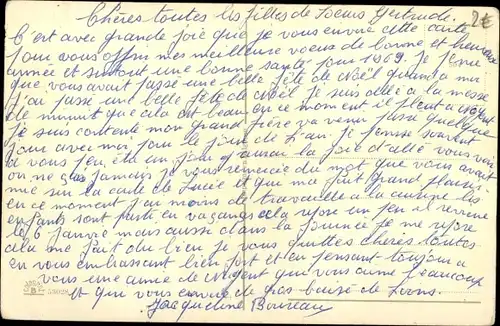 Chères toutes les filles de Soeur Gertrude. 2€
C'est avec grande joie que je vous envoie cette carte
pour vous offrir mes meilleure voeux de bonne et heureuse
année et surtout une bonne santé pour 1969. Je pense
que vous avait passé une belle fête de Noël quant a moi
j'ai passé une belle fête de Noël Je suis allé a la messe
de minuit que cela est beau, en ce moment il pleut a Nogent
je suis contente mon grand frère va venir passé quelque
jour avec moi pour le jour de l'an. Je pense souvent
a vous j'en un jour j'aurai la joie d'allé vous voir
on ne sais jamais je vous remercie du mot que vous avait
mie sur la carte de Lucie et que ma fait grand plaisir
en ce moment j'ai moins de travaille a la cuisine les
enfants sont parti en vacances cela repose un peu il revienne
le 6 janvie mais aussi dans la journee je me repose
cela me fait du bien je vous quittes chères toutes
en vous embrassant bien fort et en pensant toujours a
vous une amie de Nogent qui vous aime beaucoup
et qui vous envoie de gros baisé de loins.
Jacqueline Boureau